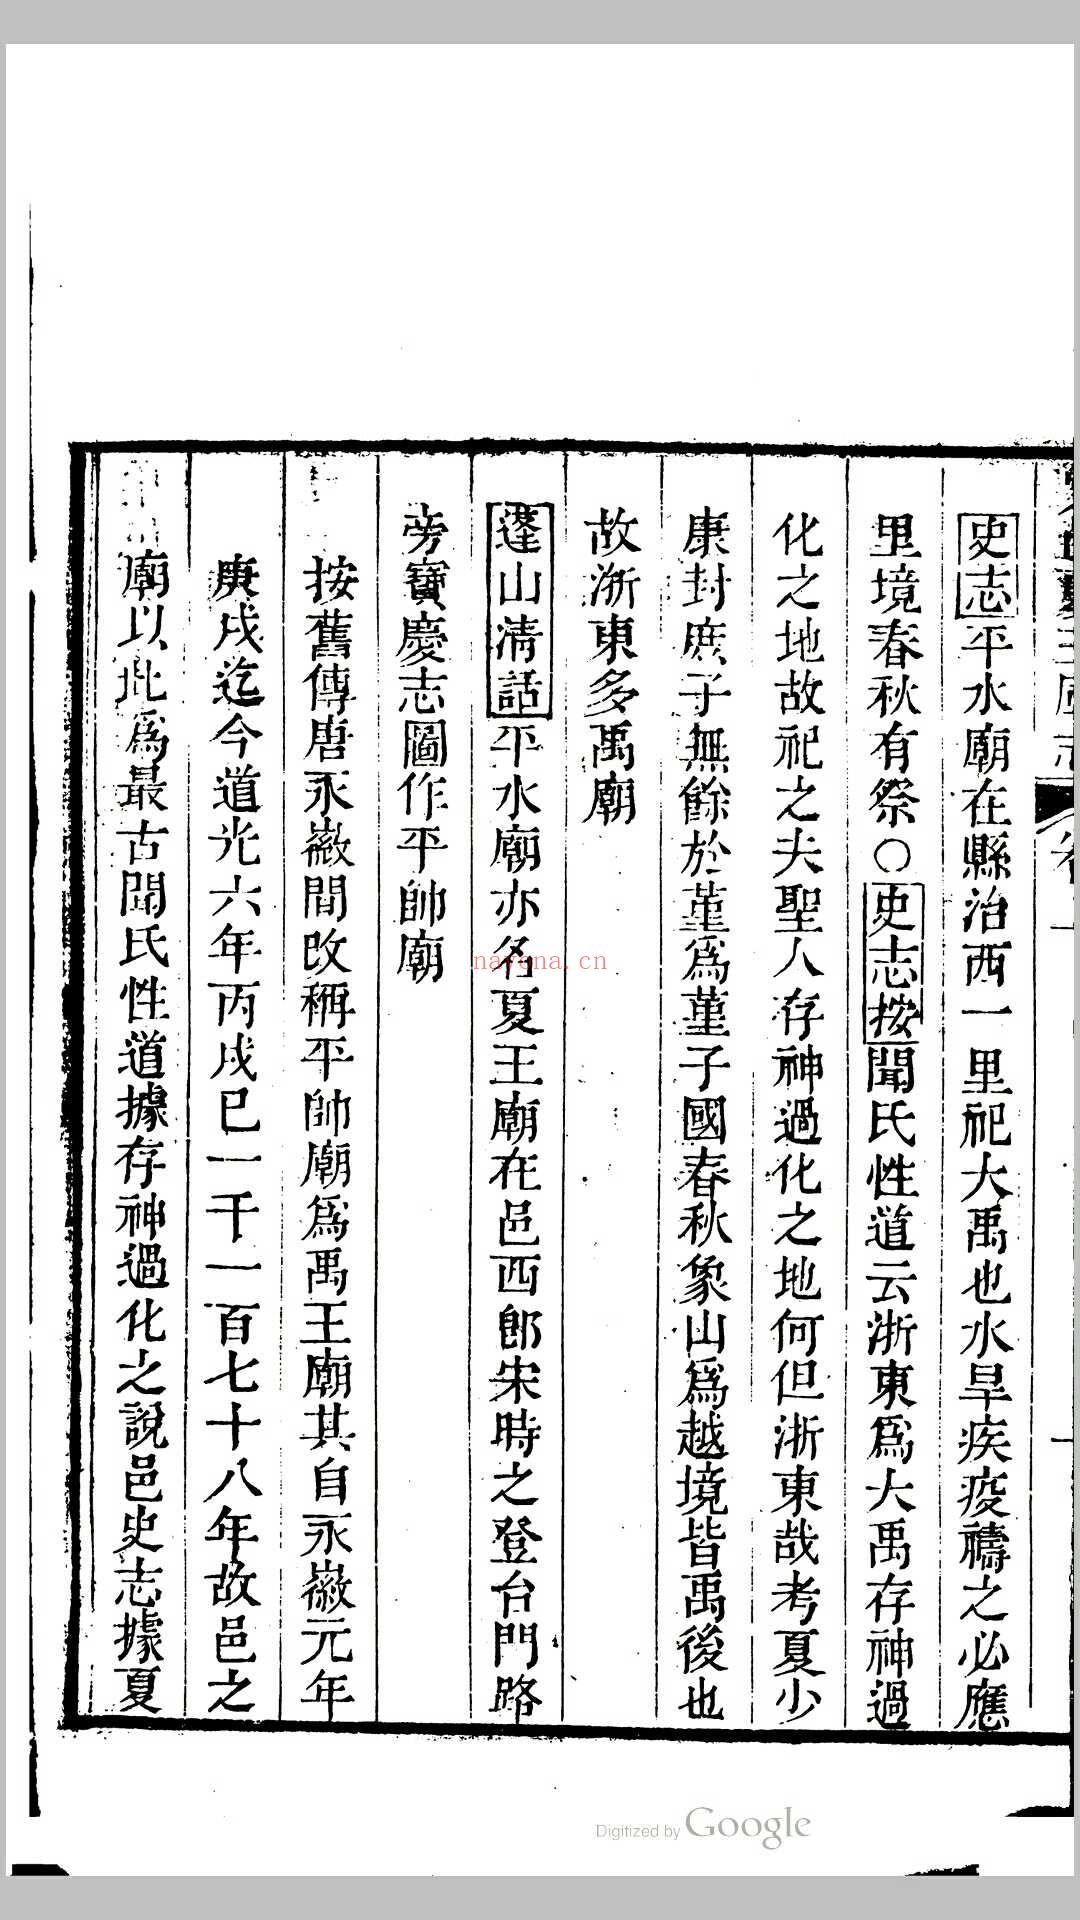 史志平水廟在縣治西一里祀大禹也水旱疾疫禱之必應
里境春秋有祭○史志按聞氏性道云浙東爲大禹存神過
化之地故祀之夫聖人存神過化之地何但浙東哉考夏少
康封庶子無餘於菫爲菫子國春秋象山爲越境皆禹後也
故浙東多禹廟
蓬山清話平水廟亦名夏王廟在邑西郎宋時之登台門路
旁寶慶志圖作平帥廟
按舊傳唐永徽間改稱平帥廟爲禹王廟其自永徽元年
庚戌迄今道光六年丙戌巳一千一百七十八年故邑之
廟以此爲最古聞氏性道據存神過化之說邑史志據夏
nayona.cn
Digitized by Google